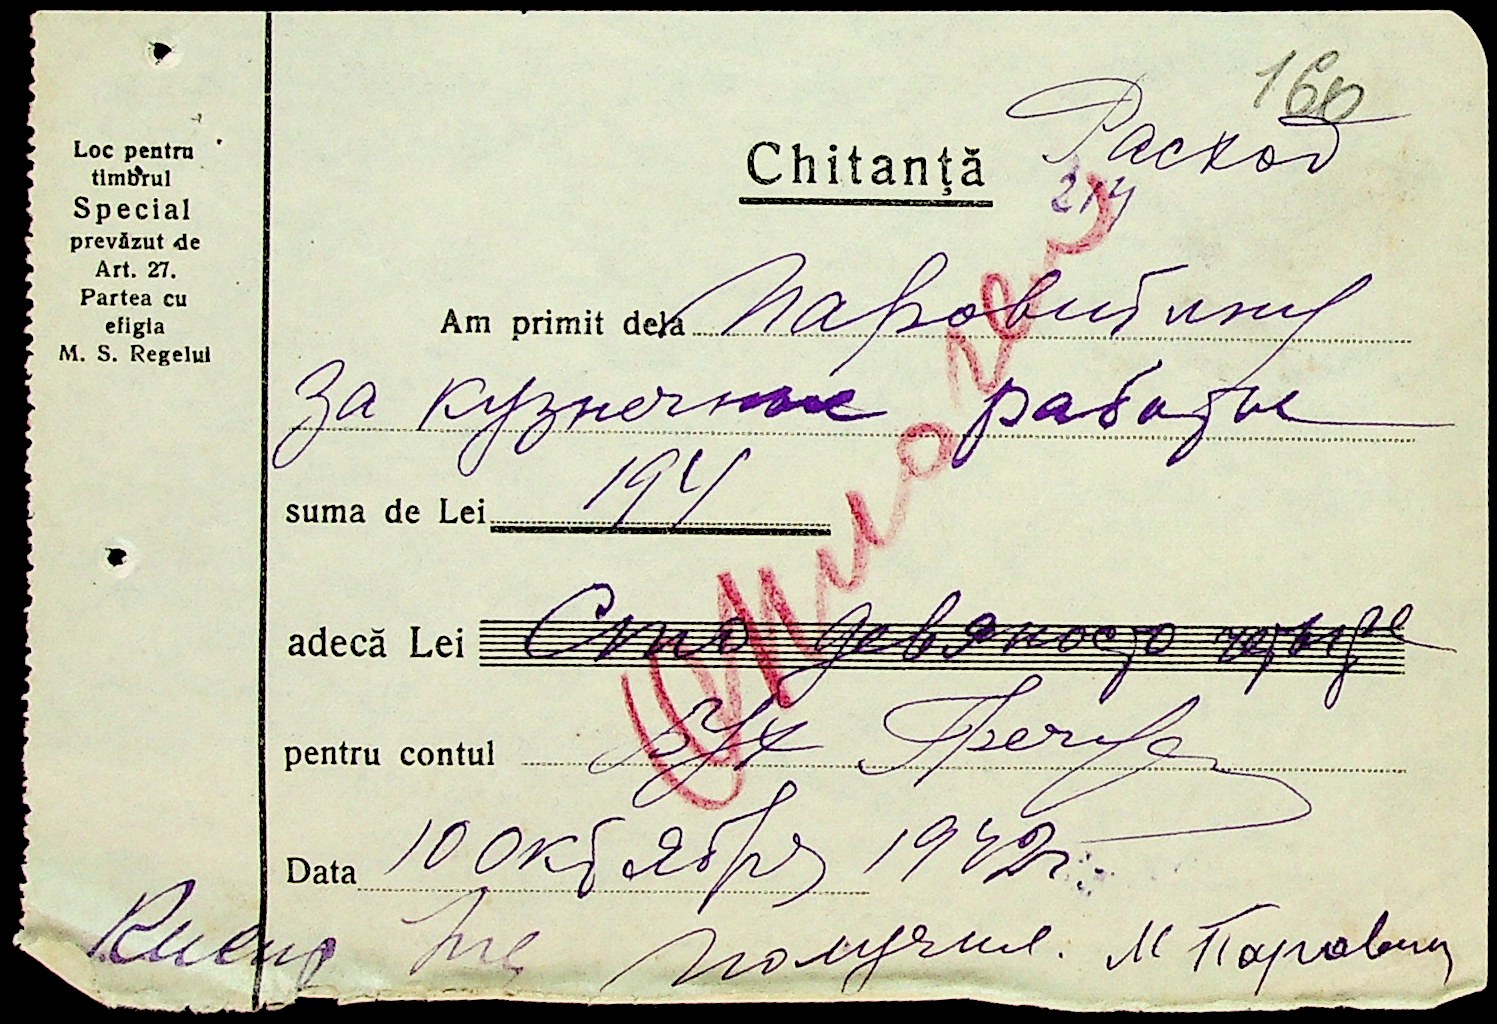 Loc pentru
timbrul
Special
prevăzut de
Art. 27.
Partea cu
efigia
M. S. Regelui
160
Расход
Chitanţă
Am primit dela
За кузнечные работы
suma de Lei 194
adecă Lei Сто девяносто четыре
pentru contul
Data 10 октября 1942 г.
получил. М Паровин